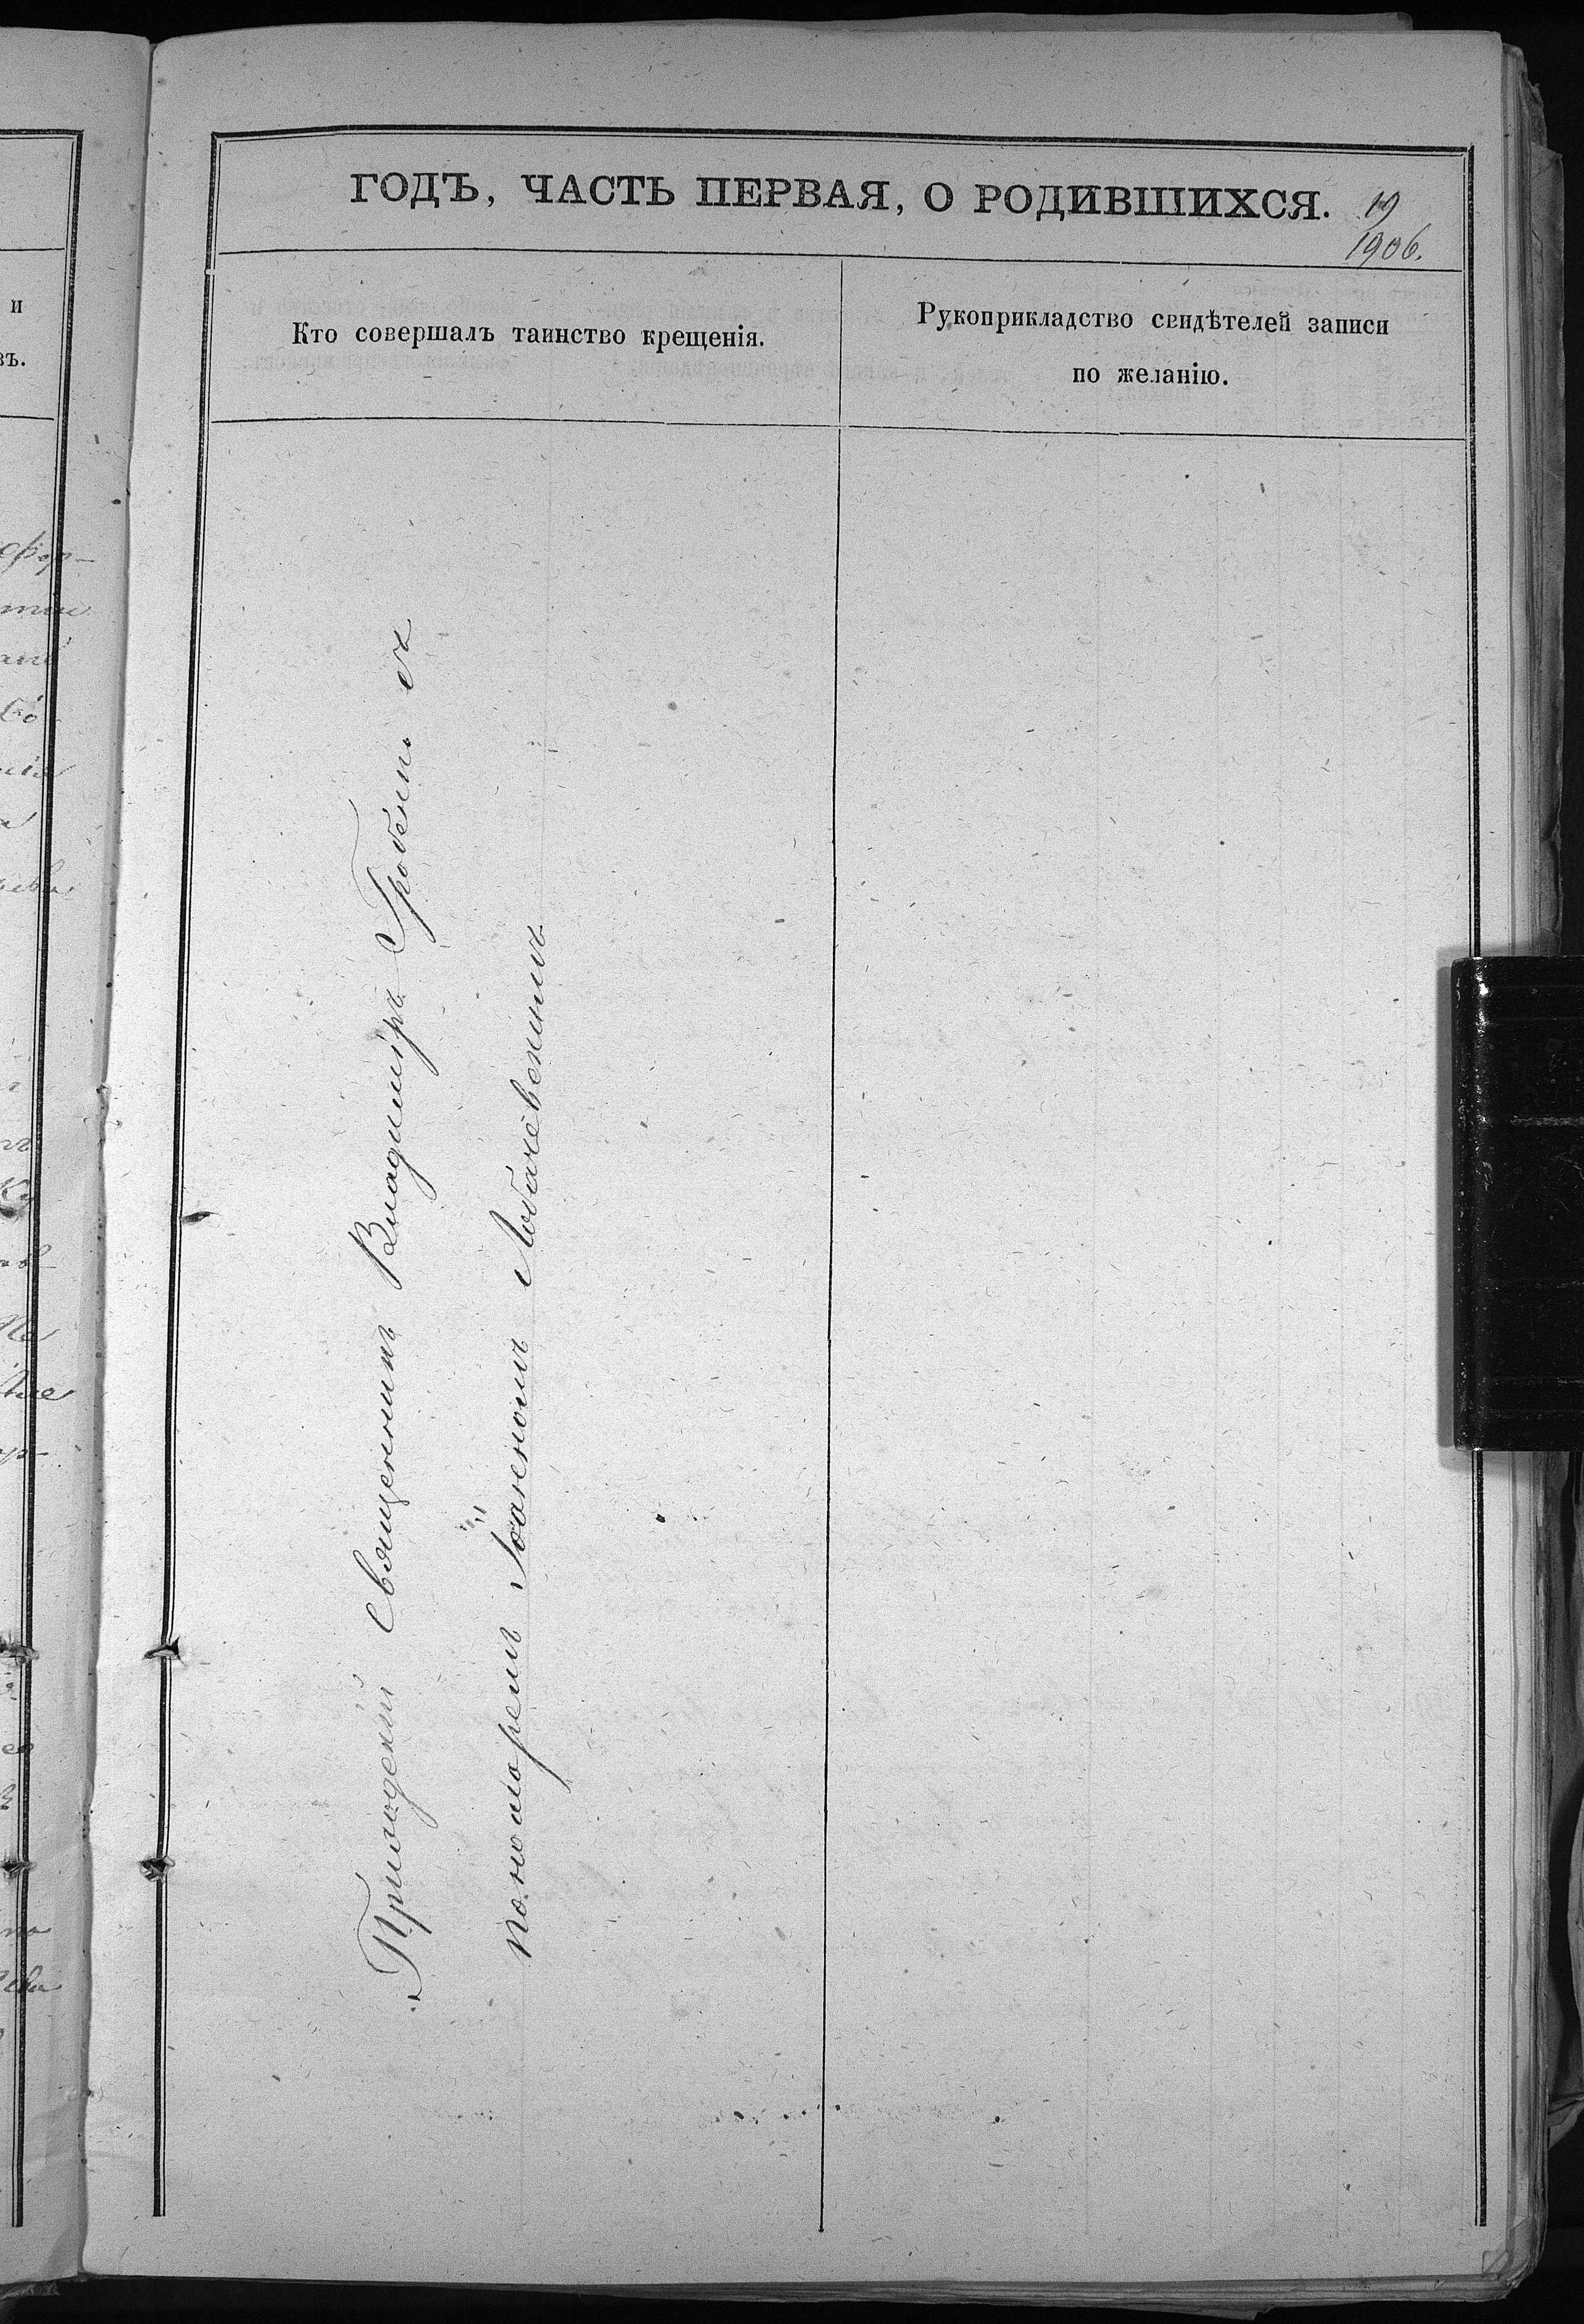 ГОДЪ, ЧАСТЬ ПЕРВАЯ, О РОДИВШИХСЯ.
19
1906.
Кто совершалъ таинство крещенія.
Рукоприкладство свидѣтелей записи
по желанію.
Приходскій Священникъ Владиміръ съ
пономаремъ Іоанномъ Лобачевскимъ
и
въ.